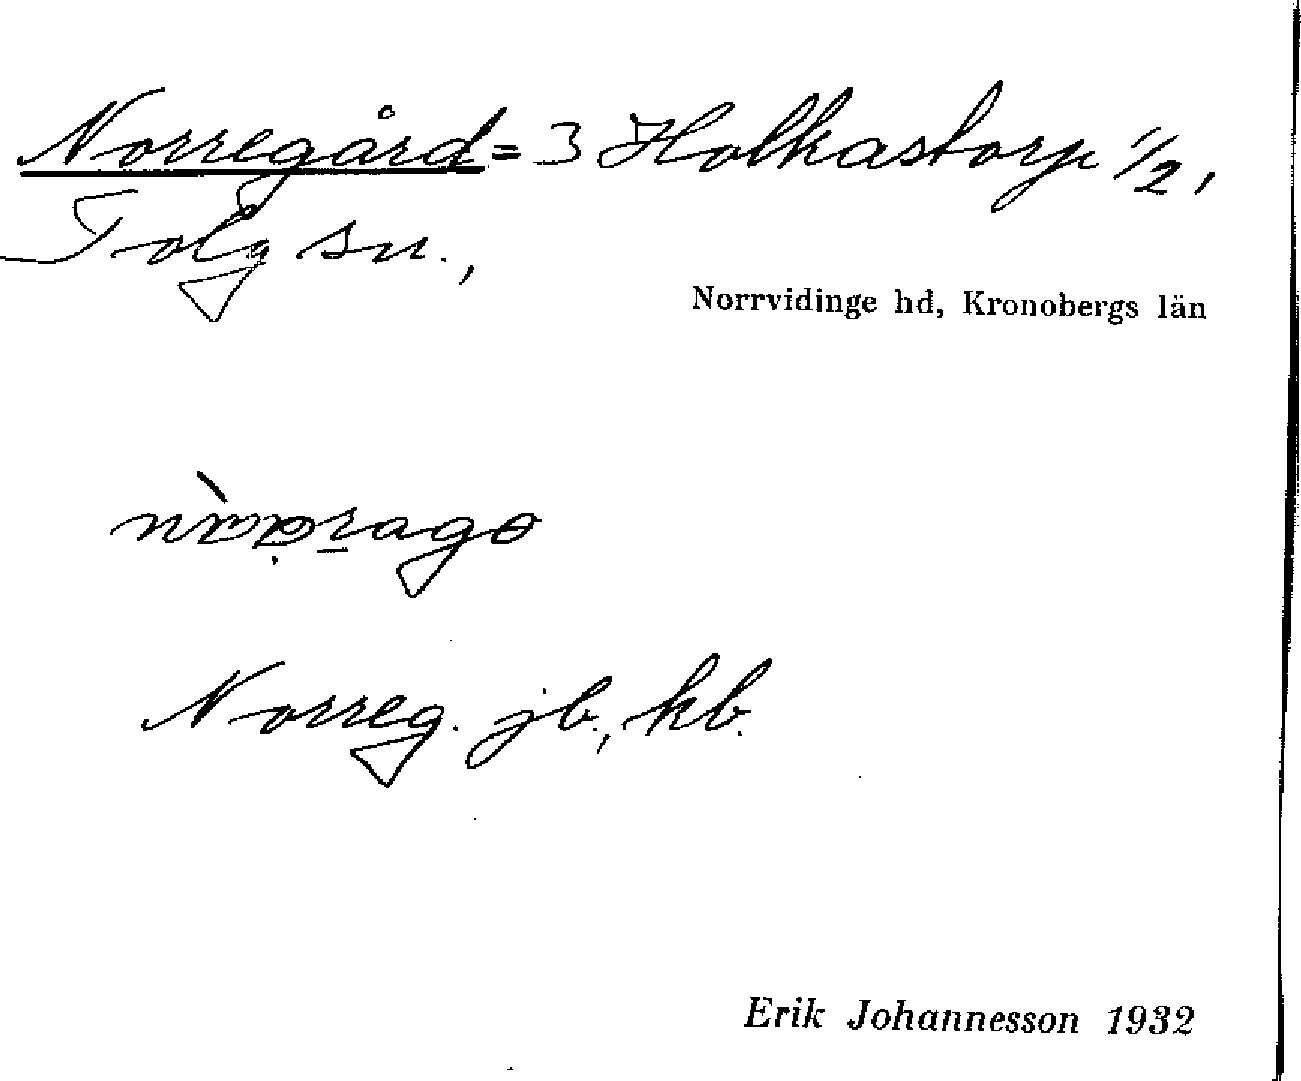 Norregård = 3 Holkastorp 1/2,
Tolg sn.,
Norrvidinge hd, Kronobergs län
Norreg. jb., kb.
Erik Johannesson 1932